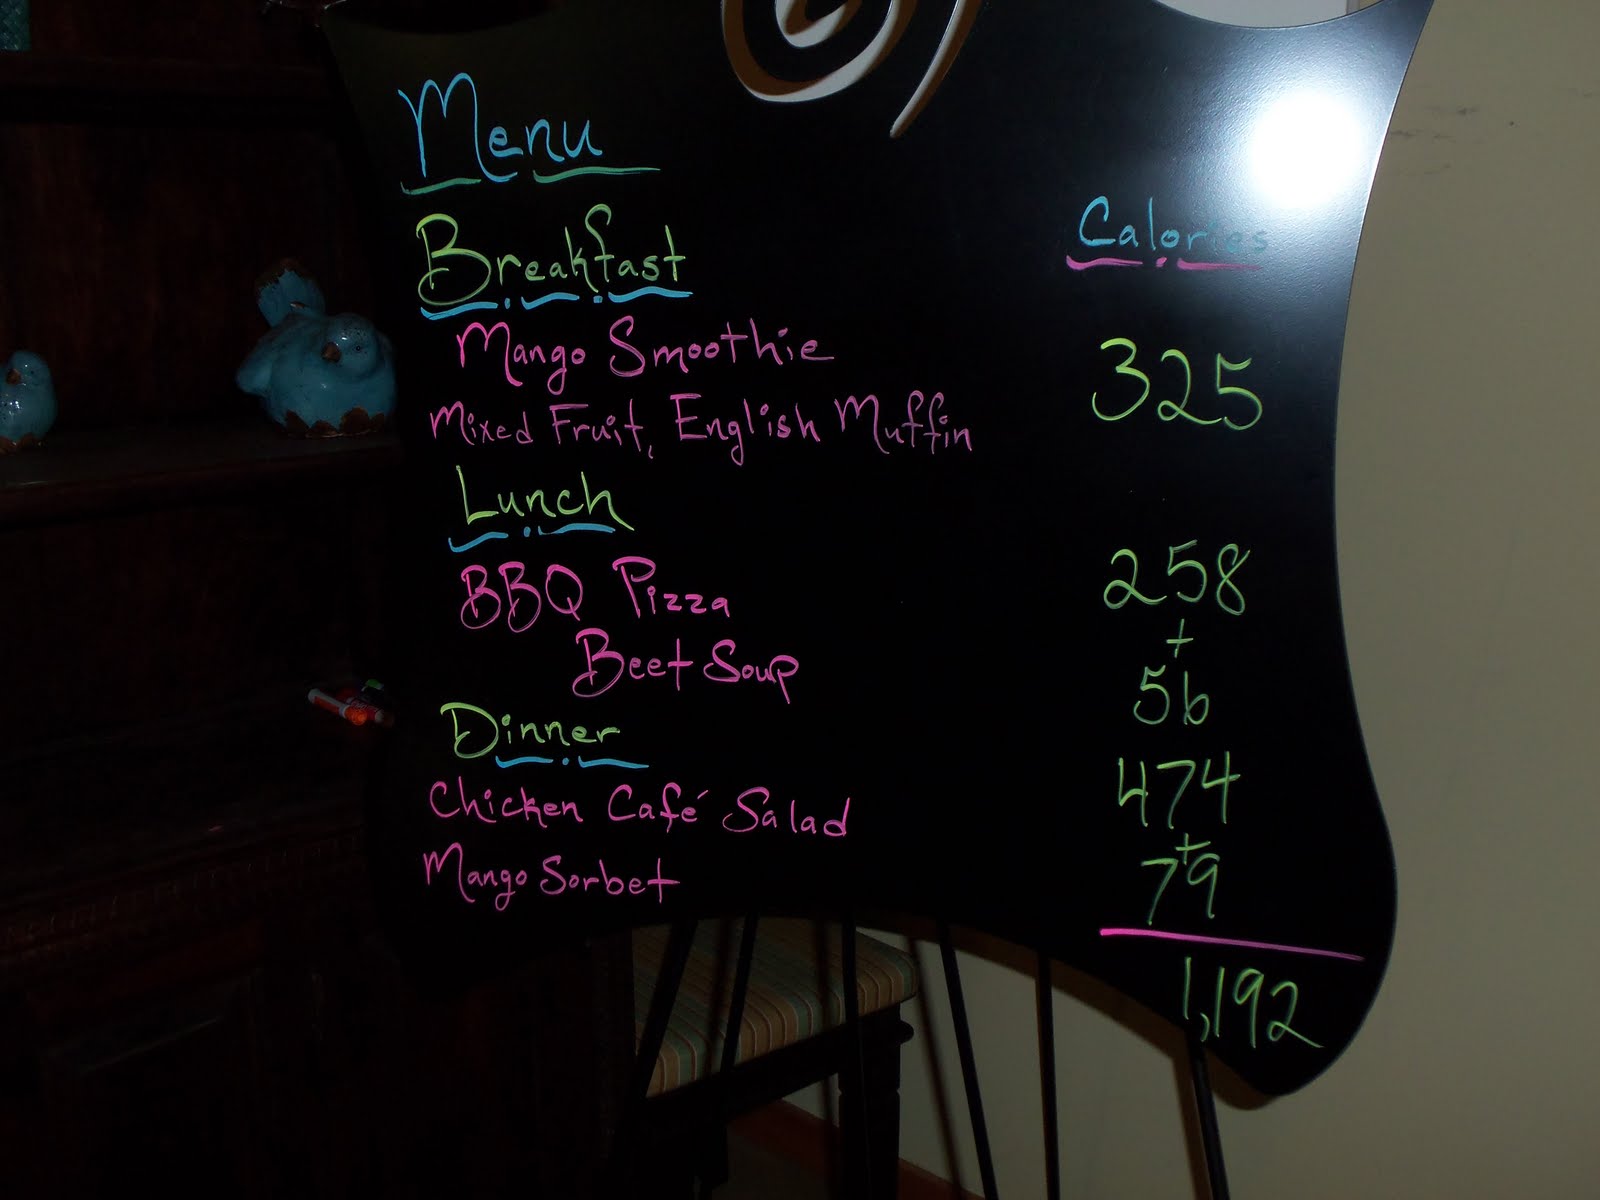 Menu
Calories
Breakfast
Mango Smoothie 325
Mixed Fruit, English Muffin
Lunch
BBQ Pizza 258
+
Beet Soup 56
Dinner
Chicken Café Salad 474
+
Mango Sorbet 79
1,192